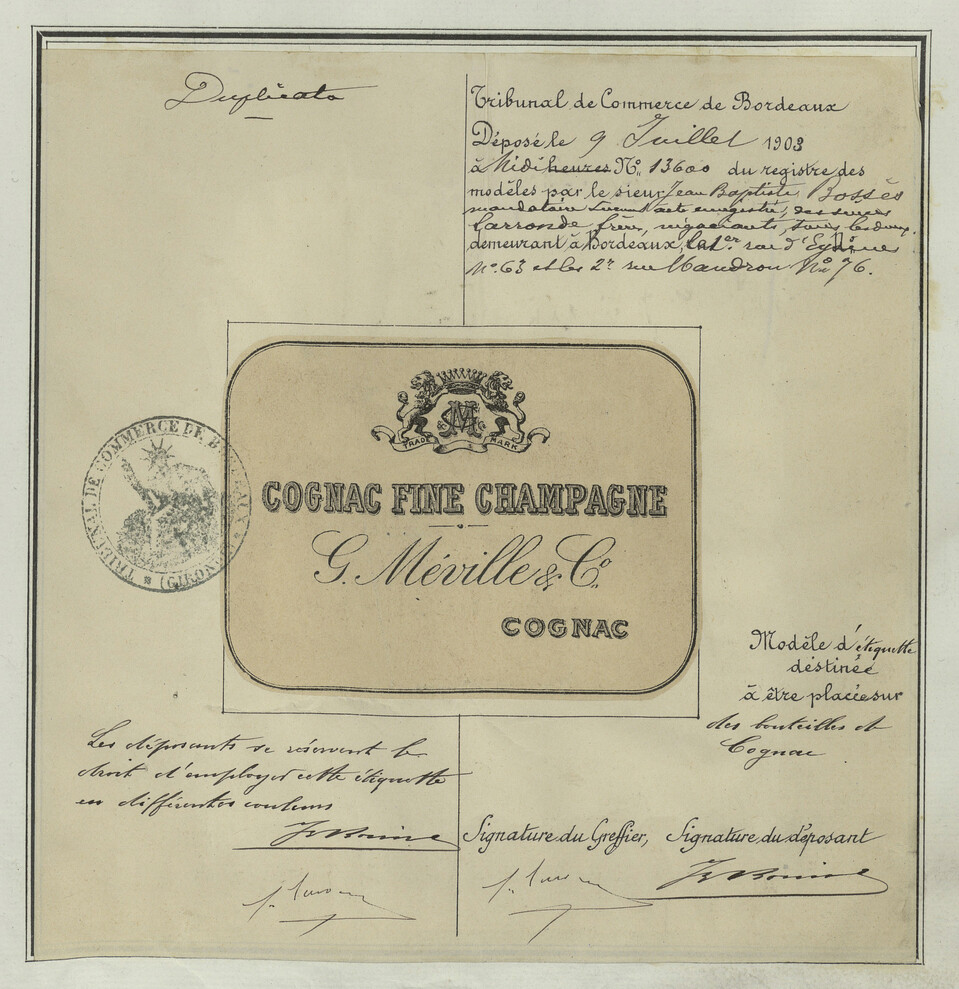 Duplicata
Tribunal de Commerce de Bordeaux
Déposé le 9 Juillet 1903
à Midi heures No. 13600 du registre des
modèles par le sieur Jean Baptiste
mandataire suivant acte enregistré, des sieurs
Larronde frères, négociants, tous les deux
demeurant à Bordeaux, le 1er. rue d'Eysines
No. 63 et les 2s rue Mandron No 76.
TRADE MARK
COGNAC FINE CHAMPAGNE
G. Méville & Co.
COGNAC
TRIBUNAL DE COMMERCE DE BORDEAUX * (GIRONDE) *
Modèle d'étiquette
destinée
à être placée sur
des bouteilles de
Cognac
Les déposants se réservent le
droit d'employer cette étiquette
en différentes couleurs
Signature du Greffier, Signature du déposant